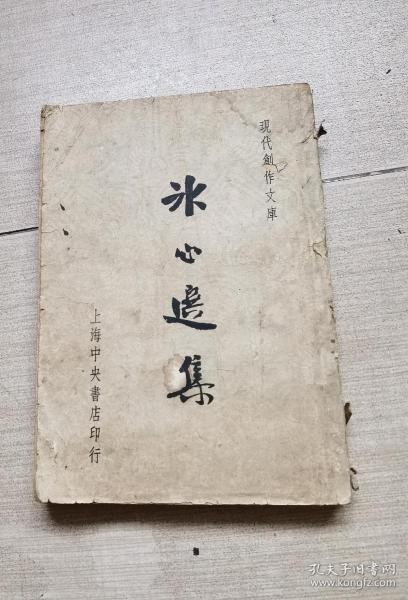 現代創作文庫
冰心選集
上海中央書店印行
孔夫子旧书网
www.kongfz.com